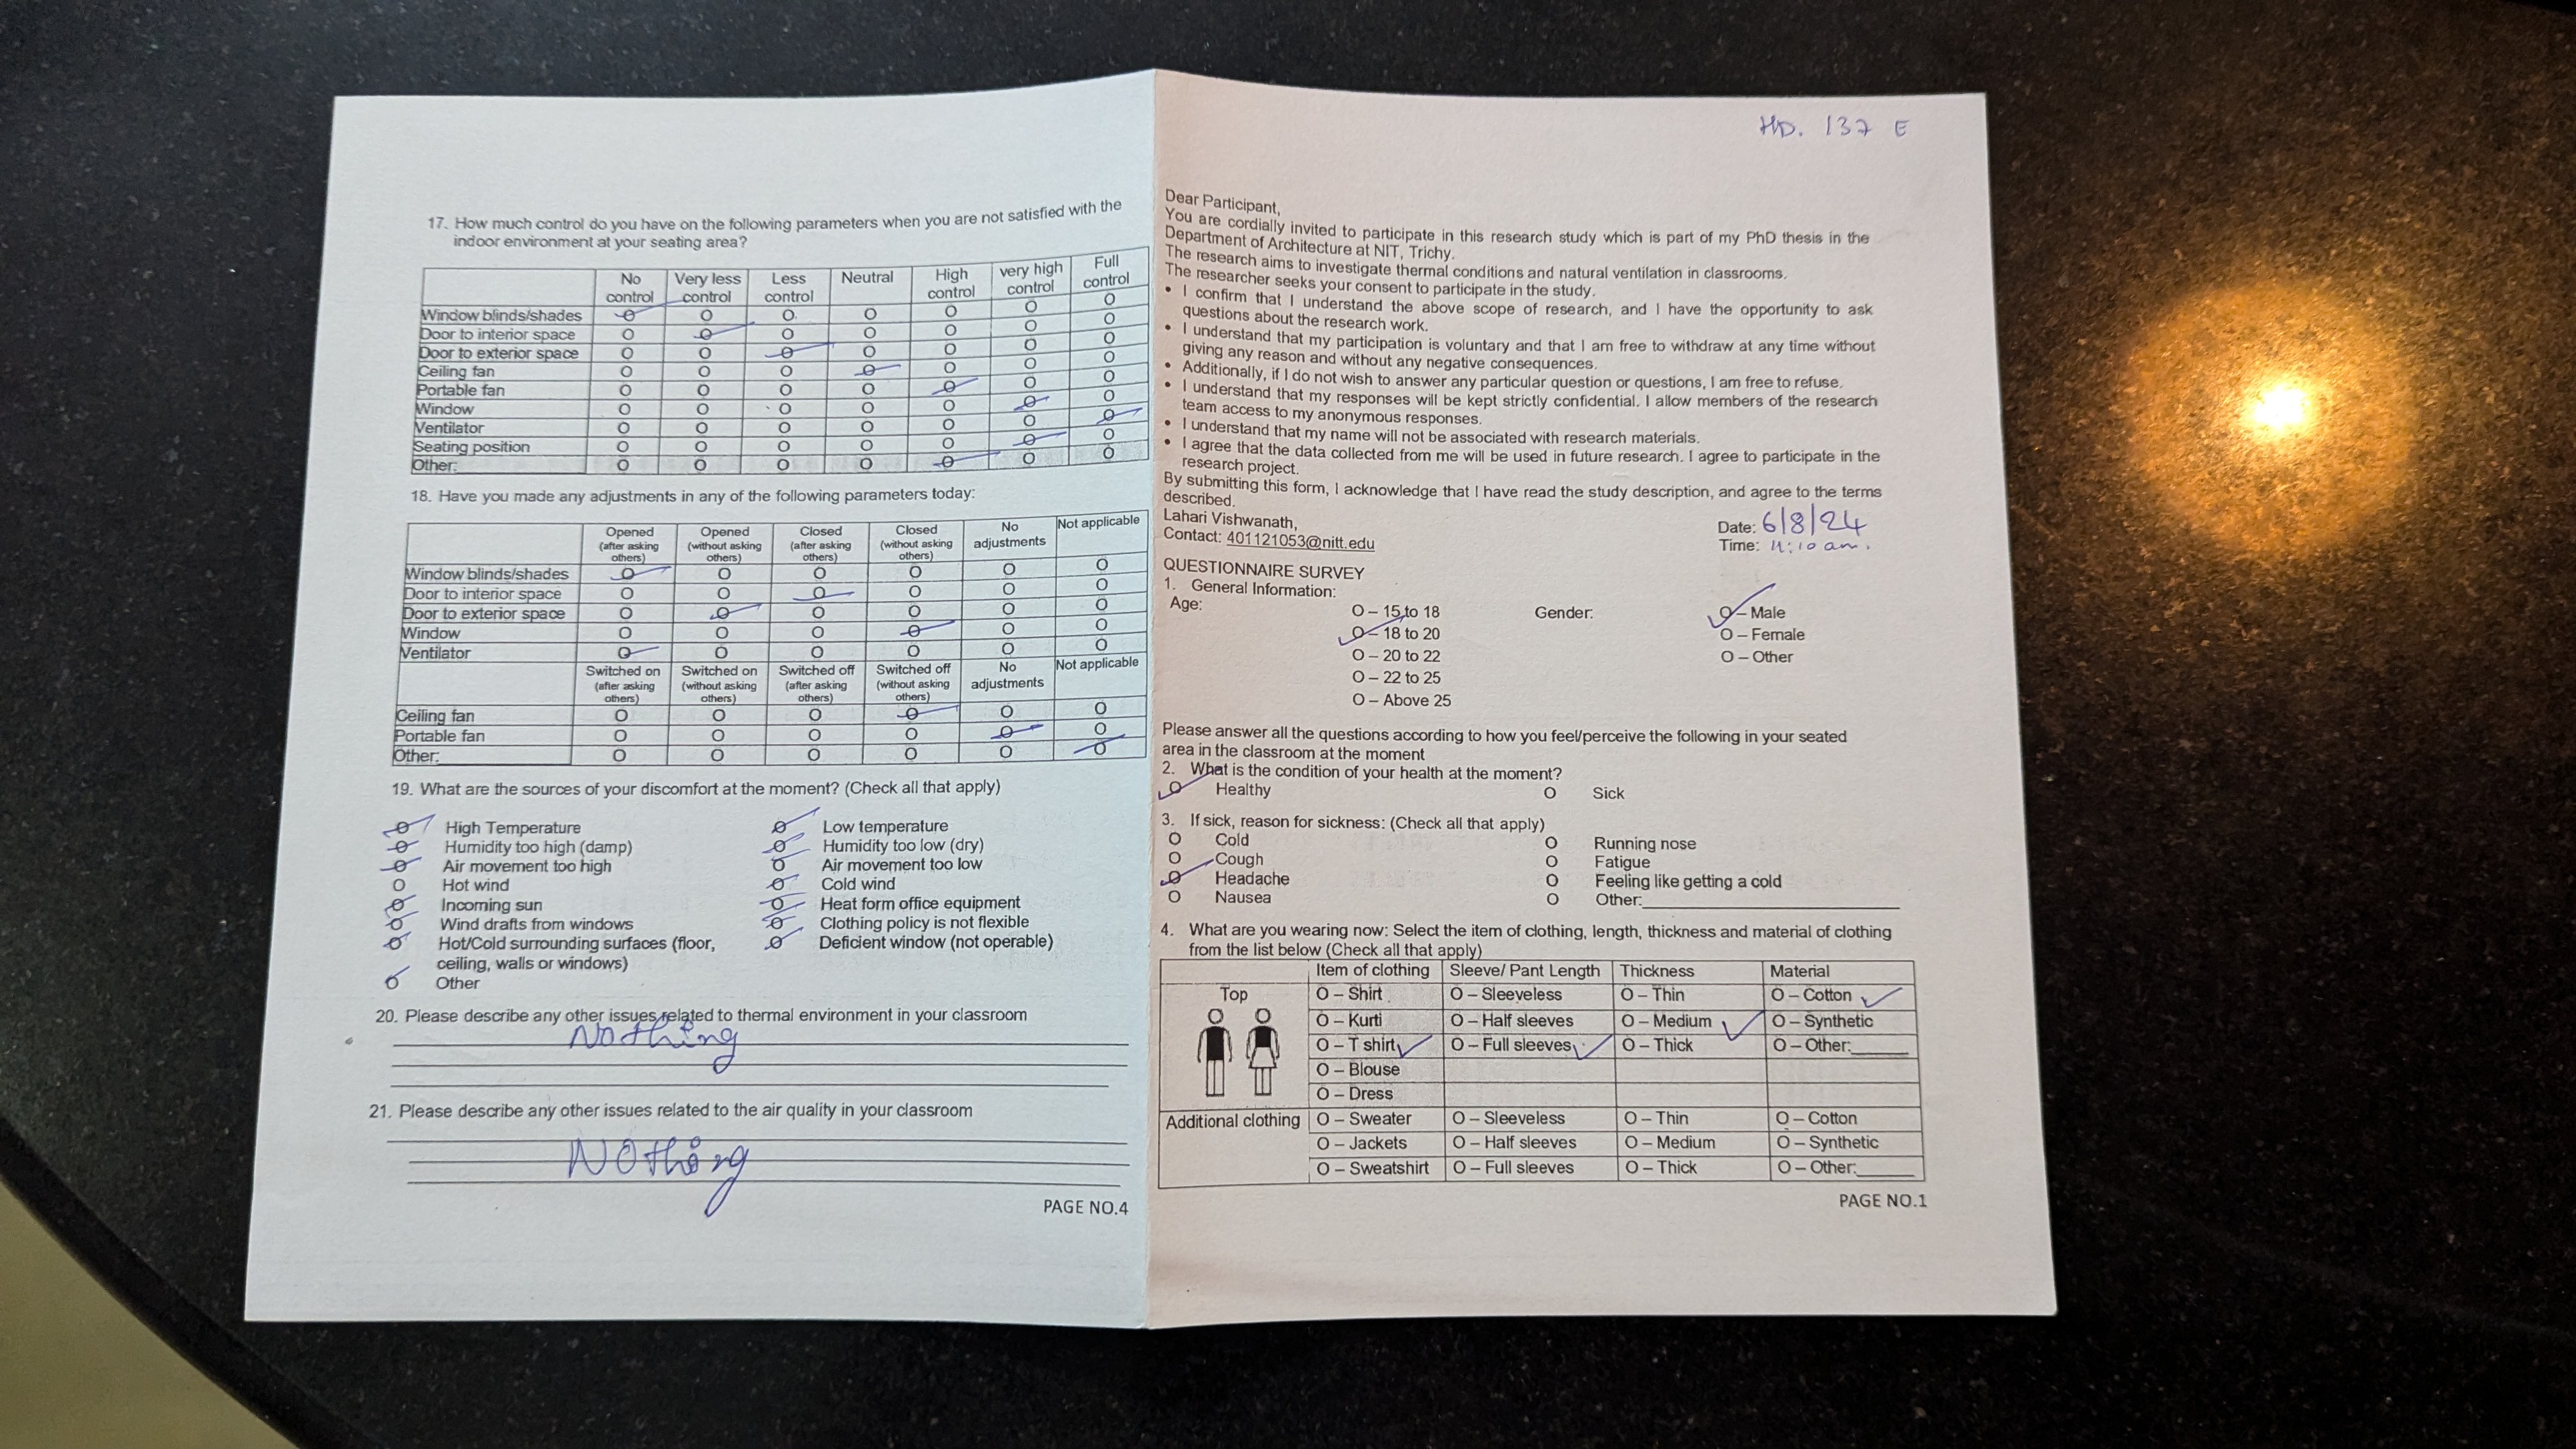 17. How much control do you have on the following parameters when you are not satisfied with the
indoor environment at your seating area?
No control Very less control Less control Neutral High control very high control Full control
Window blinds/shades O O O O O O O
Door to interior space O O O O O O O
Door to exterior space O O O O O O O
Ceiling fan O O O O O O O
Portable fan O O O O O O O
Window O O O O O O O
Ventilator O O O O O O O
Seating position O O O O O O O
Other: O O O O O O O
18. Have you made any adjustments in any of the following parameters today:
Opened (after asking others) Opened (without asking others) Closed (after asking others) Closed (without asking others) No adjustments Not applicable
Window blinds/shades O O O O O O
Door to interior space O O O O O O
Door to exterior space O O O O O O
Window O O O O O O
Ventilator O O O O O O
Switched on (after asking others) Switched on (without asking others) Switched off (after asking others) Switched off (without asking others) No adjustments Not applicable
Ceiling fan O O O O O O
Portable fan O O O O O O
Other: O O O O O O
19. What are the sources of your discomfort at the moment? (Check all that apply)
O High Temperature O Low temperature
O Humidity too high (damp) O Humidity too low (dry)
O Air movement too high O Air movement too low
O Hot wind O Cold wind
O Incoming sun O Heat form office equipment
O Wind drafts from windows O Clothing policy is not flexible
O Hot/Cold surrounding surfaces (floor, O Deficient window (not operable)
ceiling, walls or windows)
O Other
20. Please describe any other issues related to thermal environment in your classroom
Nothing
21. Please describe any other issues related to the air quality in your classroom
Nothing
PAGE NO.4
HD. 137 E
Dear Participant,
You are cordially invited to participate in this research study which is part of my PhD thesis in the
Department of Architecture at NIT, Trichy.
The research aims to investigate thermal conditions and natural ventilation in classrooms.
The researcher seeks your consent to participate in the study.
• I confirm that I understand the above scope of research, and I have the opportunity to ask
questions about the research work.
• I understand that my participation is voluntary and that I am free to withdraw at any time without
giving any reason and without any negative consequences.
• Additionally, if I do not wish to answer any particular question or questions, I am free to refuse.
• I understand that my responses will be kept strictly confidential. I allow members of the research
team access to my anonymous responses.
• I understand that my name will not be associated with research materials.
• I agree that the data collected from me will be used in future research. I agree to participate in the
research project.
By submitting this form, I acknowledge that I have read the study description, and agree to the terms
described.
Lahari Vishwanath,
Contact: 401121053@nitt.edu
Date: 6/8/24
Time: 11:10 am.
QUESTIONNAIRE SURVEY
1. General Information:
Age: O – 15 to 18 Gender: O – Male
O – 18 to 20 O – Female
O – 20 to 22 O – Other
O – 22 to 25
O – Above 25
Please answer all the questions according to how you feel/perceive the following in your seated
area in the classroom at the moment
2. What is the condition of your health at the moment?
O Healthy O Sick
3. If sick, reason for sickness: (Check all that apply)
O Cold O Running nose
O Cough O Fatigue
O Headache O Feeling like getting a cold
O Nausea O Other:
4. What are you wearing now: Select the item of clothing, length, thickness and material of clothing
from the list below (Check all that apply)
Item of clothing Sleeve/ Pant Length Thickness Material
Top O – Shirt O – Sleeveless O – Thin O – Cotton
O – Kurti O – Half sleeves O – Medium O – Synthetic
O – T shirt O – Full sleeves O – Thick O – Other:
O – Blouse
O – Dress
Additional clothing O – Sweater O – Sleeveless O – Thin O – Cotton
O – Jackets O – Half sleeves O – Medium O – Synthetic
O – Sweatshirt O – Full sleeves O – Thick O – Other:
PAGE NO.1